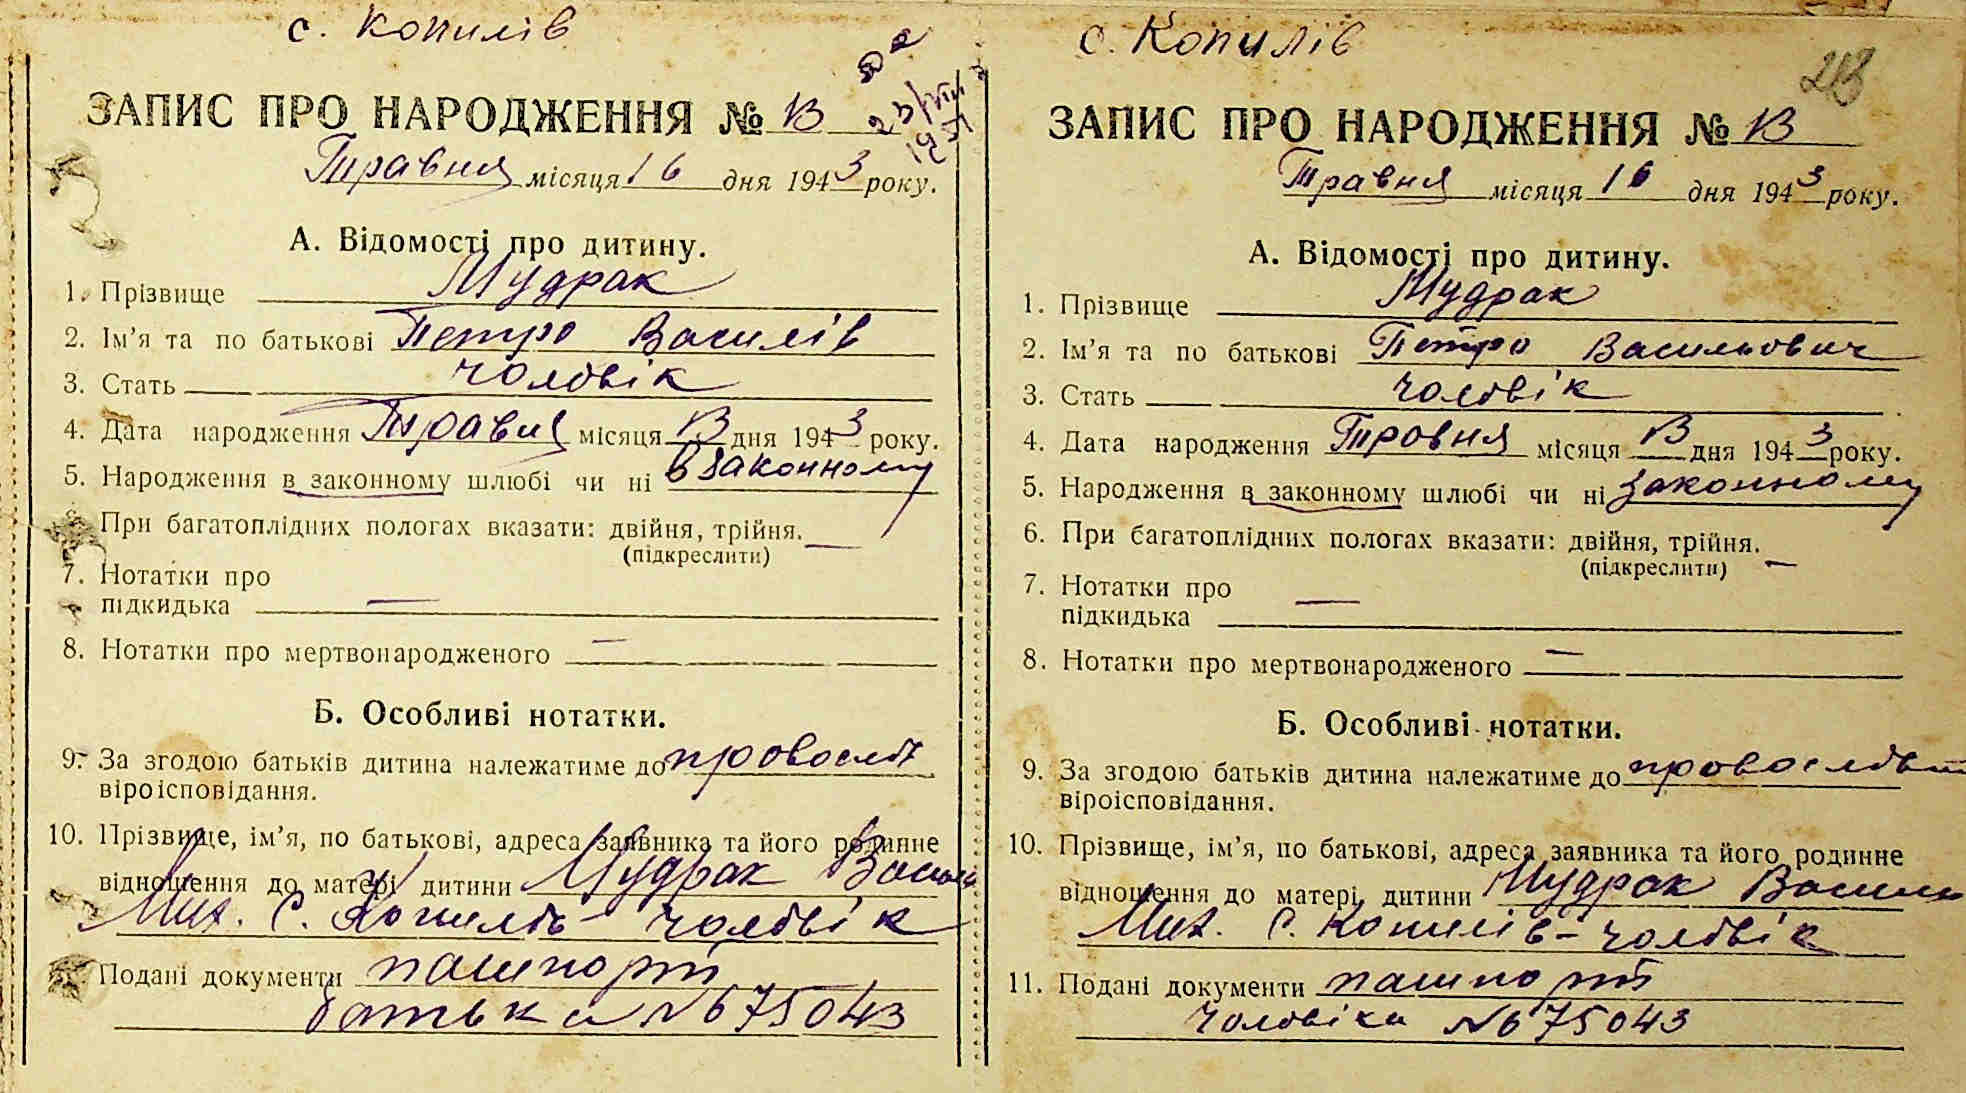 с. Копилів
ЗАПИС ПРО НАРОДЖЕННЯ № 13
23/VIII
Травня місяця 16 дня 1943 року.
А. Відомості про дитину.
1. Прізвище Мудрак
2. Ім'я та по батькові Петро Василів
3. Стать чоловік
4. Дата народження Травня місяця 13 дня 1943 року.
5. Народження в законному шлюбі чи ні в законному
При багатоплідних пологах вказати: двійня, трійня. —
(підкреслити)
7. Нотатки про
підкидька —
8. Нотатки про мертвонародженого —
Б. Особливі нотатки.
9. За згодою батьків дитина належатиме до провослов
віроісповідання.
10. Прізвище, ім'я, по батькові, адреса заявника та його родинне
відношення до матері дитини Мудрак Василь
Мих. С. Копилів - чоловік
Подані документи пашпорт
батька №675043
с. Копилів
213
ЗАПИС ПРО НАРОДЖЕННЯ № 13
Травня місяця 16 дня 1943 року.
А. Відомості про дитину.
1. Прізвище Мудрак
2. Ім'я та по батькові Петро Васильович
3. Стать чоловік
4. Дата народження Тровня місяця 13 дня 1943 року.
5. Народження в законному шлюбі чи ні законному
6. При багатоплідних пологах вказати: двійня, трійня. —
(підкреслити)
7. Нотатки про
підкидька —
8. Нотатки про мертвонародженого —
Б. Особливі нотатки.
9. За згодою батьків дитина належатиме до
віроісповідання.
10. Прізвище, ім'я, по батькові, адреса заявника та його родинне
відношення до матері дитини Мудрак Василь
Мих. С. Копилів - чоловік
11. Подані документи пашпорт
чоловіка №675043